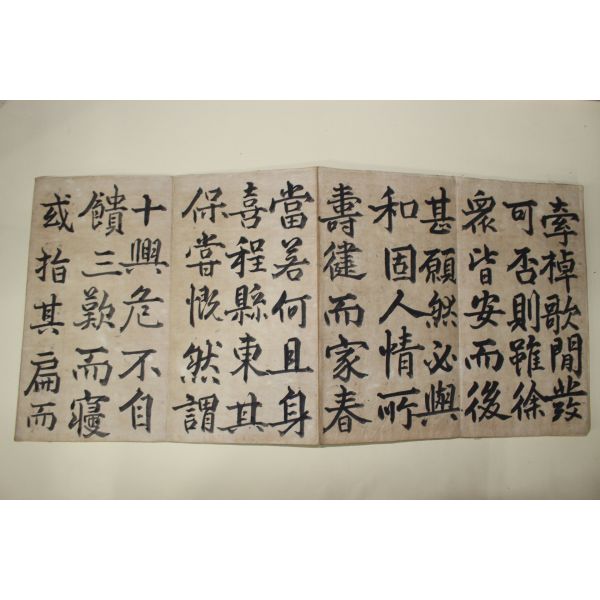 牽棹歌閒發
可否則雖徐
衆皆安而後
甚願然必與
和固人情所
壽健而家春
當若何且身
喜程縣東其
保嘗慨然謂
十興危不自
饋三歎而寢
或指其扁而